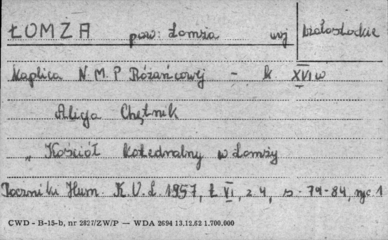 ŁOMŻA pow: Łomża woj białostockie
Kaplica N.M.P Różańcowej - k XVI w
Alicja Chętnik
„ Kościół katedralny w Łomży
Roczniki Hum. K.U.L. 1957, t. VI, z 4, s. 79-84, ryc 1
CWD - B-15-b, nr 2827/ZW/P — WDA 2694 13.12.82 1.700.000